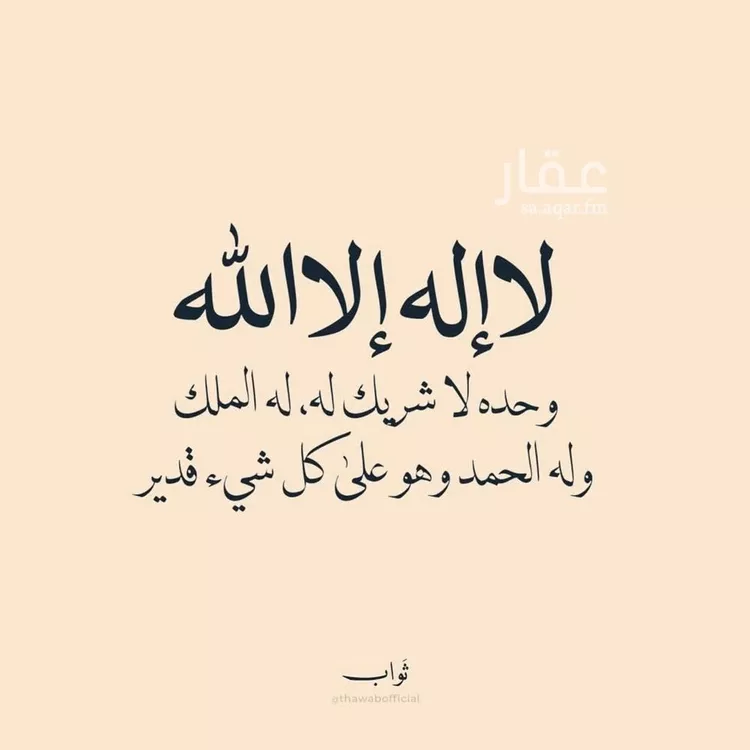 عقار
sa.aqar.fm
لا إله إلا الله
وحده لا شريك له، له الملك
وله الحمد وهو علىٰ كل شيء قدير
ثَواب
@thawabofficial